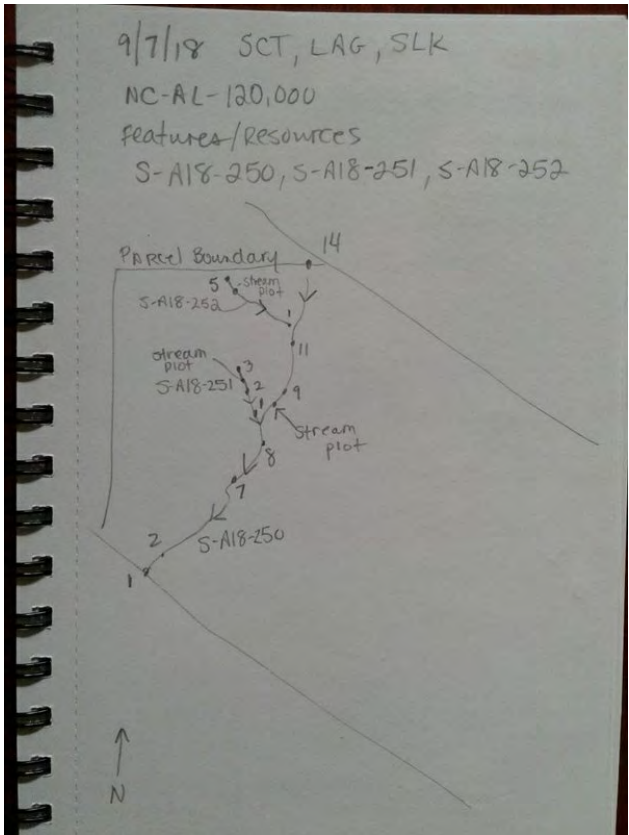 9/7/18 SCT, LAG, SLK
NC-AL-120,000
Features/Resources
S-A18-250, S-A18-251, S-A18-252
14
PARCEL Boundary
5 stream
plot
S-A18-252
1
11
stream
plot
3
S-A18-251 2
1
9
stream
plot
8
7
S-A18-250
2
1
N